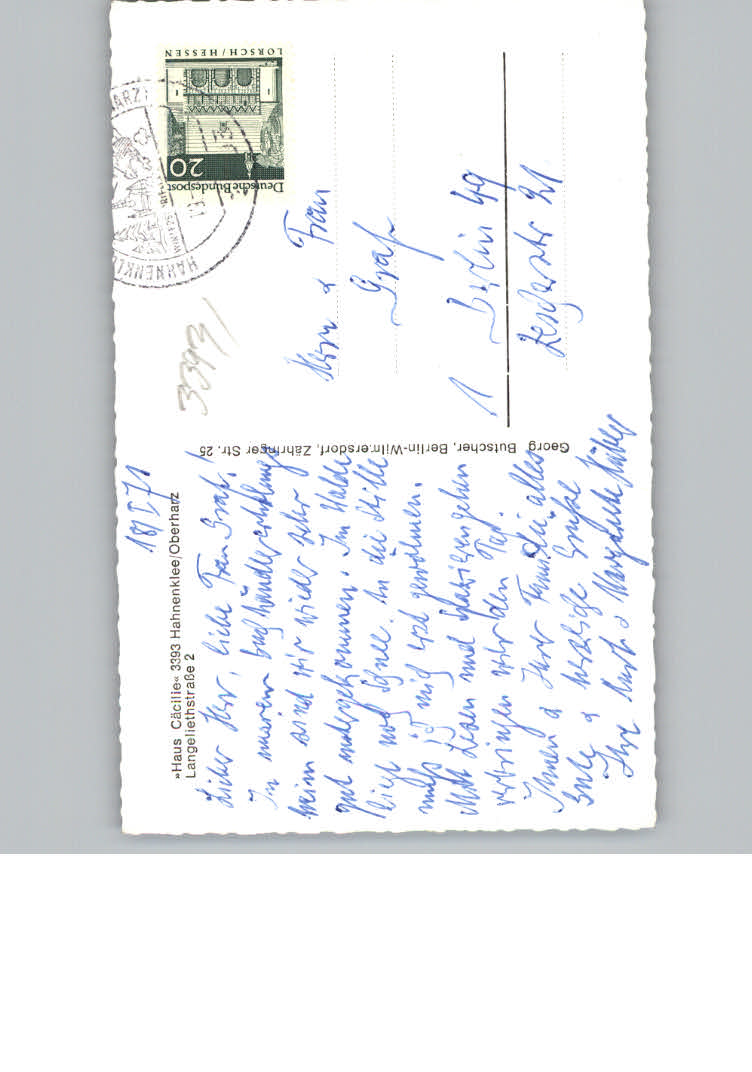 »Haus Cäcilie« 3393 Hahnenklee/Oberharz
Langeliethstraße 2
18/I 71
Lieber Herr, liebe Frau Graf!
In unserem Buchhändlererholungs
heim sind wir wieder sehr
gut untergekommen. Im Walde
liegt noch Schnee. An die Stille
muß ich mich erst gewöhnen.
Mit Lesen und Spazierengehen
verbringen wir den Tag.
Ihnen & Ihrer Familie alles
Gute & herzliche Grüße
Ihre Kurt & Margarete
Georg Butscher, Berlin-Wilmersdorf, Zähringer Str. 25
3393
HAHNENKLEE
HARZ
Deutsche Bundespost
20
LORSCH / HESSEN
Herrn & Frau
Graf
1 Berlin 49
21